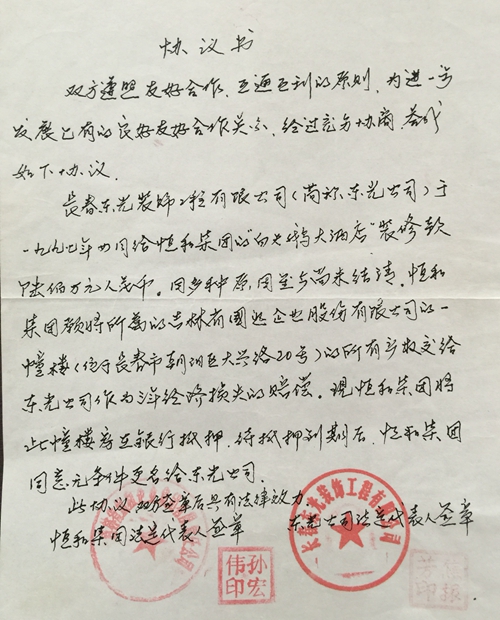 协议书
双方遵照友好合作、互通互利的原则，为进一步
发展已有的良好友好合作关系，经过充分协商，签成
如下协议。
长春东光装饰工程有限公司（简称东光公司）于
一九九七年四月给恒和集团的“白天鹅大酒店”装修款
陆佰万元人民币。因多种原因至今尚未结清。恒和
集团愿将所属的吉林省国达企业股份有限公司的一
幢楼（位于长春市朝阳区大兴路20号）的所有产权交给
东光公司作为多年经济损失的赔偿。现恒和集团将
此幢楼房在银行抵押，待抵押到期后，恒和集团
同意无条件更名给东光公司。
此协议双方签章后具有法律效力
恒和集团法定代表人签章 东光公司法定代表人签章
长春东光装饰工程有限公司
孙宏
伟印